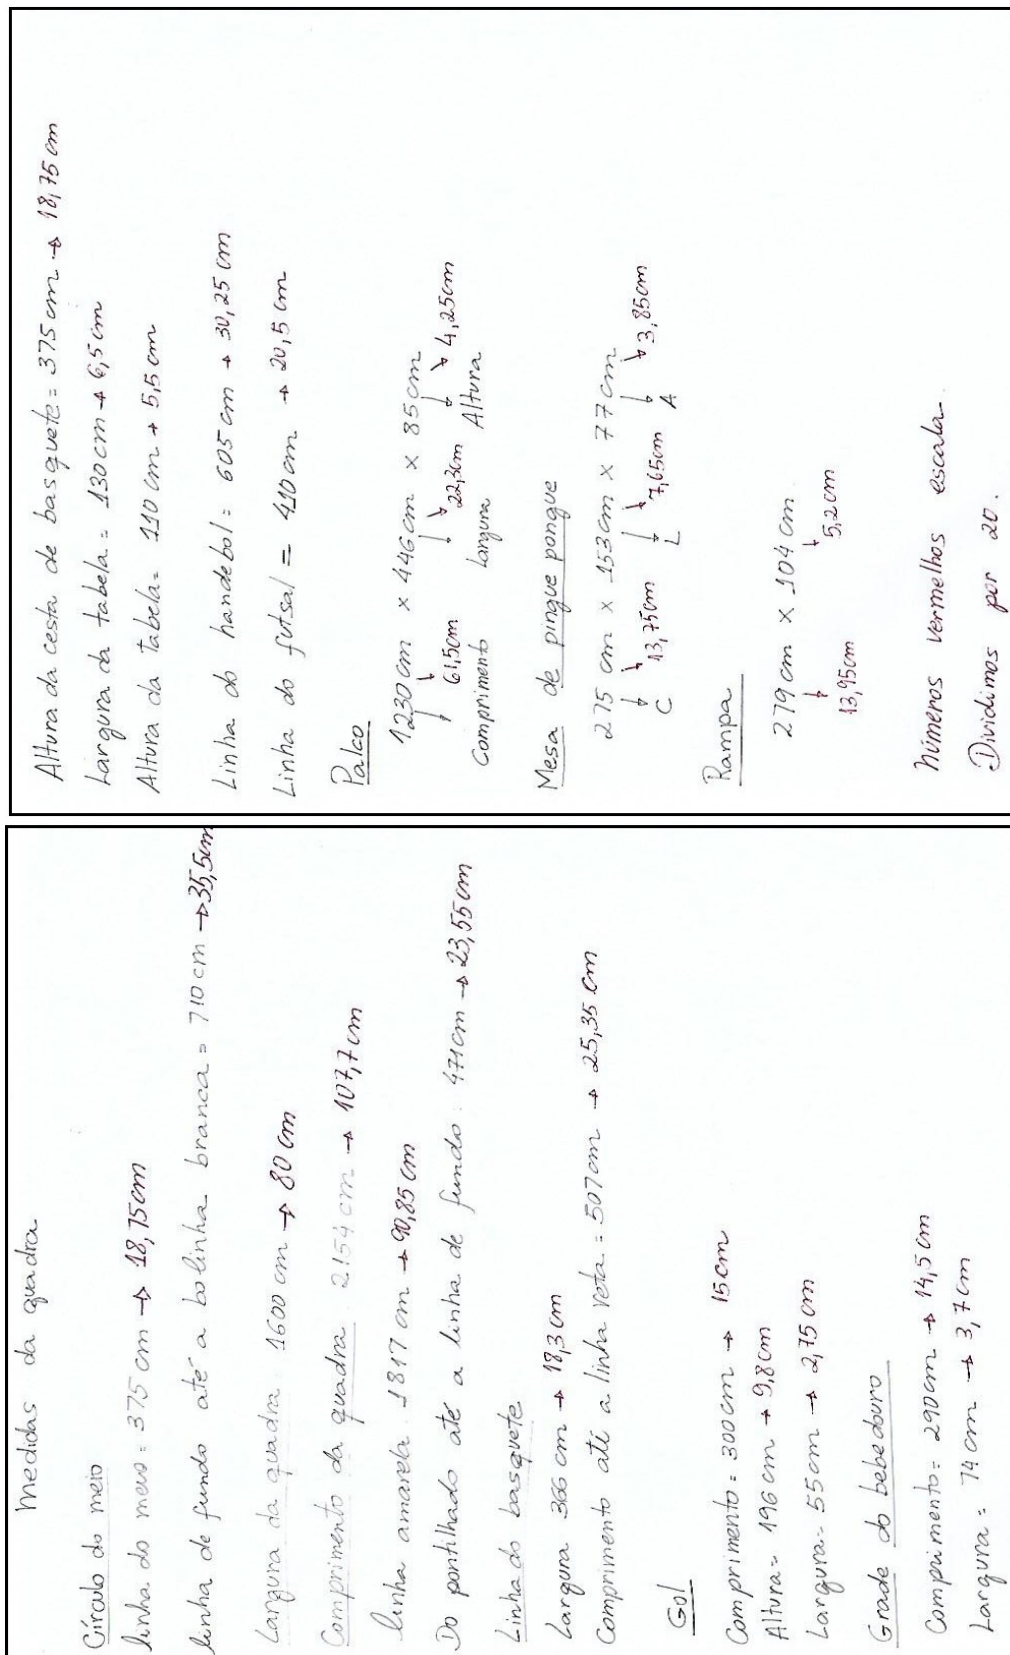 Medidas da quadra
Círculo do meio
linha do meio = 375 cm → 18,75cm
linha de fundo até a bolinha branca = 710 cm → 35,5cm
Largura da quadra. 1600 cm → 80 cm
Comprimento da quadra. 2154 cm → 107,7 cm
linha amarela. 1817 cm → 90,85 cm
Do pontilhado até a linha de fundo. 471cm → 23,55cm
Linha do basquete
Largura 366 cm → 18,3 cm
Comprimento até a linha reta = 507cm → 25,35 cm
Gol
Comprimento = 300cm → 15cm
Altura = 196 cm → 9,8cm
Largura = 55cm → 2,75 cm
Grade do bebedouro
Comprimento = 290cm → 14,5 cm
Largura = 74 cm → 3,7 cm
Altura da cesta de basquete = 375 cm → 18,75 cm
Largura da tabela = 130cm → 6,5 cm
Altura da tabela = 110 cm → 5,5 cm
Linha do handebol = 605 cm → 30,25 cm
Linha do futsal = 410 cm → 20,5 cm
Palco
1230 cm × 446cm × 85cm
61,5cm 22,3cm 4,25cm
Comprimento Largura Altura
Mesa de pingue pongue
275 cm × 153cm × 77cm
C 13,75cm L 7,65cm A 3,85cm
Rampa
279cm × 104cm.
13,95cm 5,2cm
Números vermelhos escala.
Dividimos por 20.